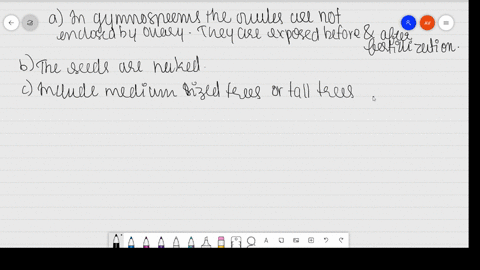 a) In gymnosperms the ovules are not
enclosed by ovary. They are exposed before & after
fertilization.
b) The seeds are naked.
c) Include medium sized trees or tall trees